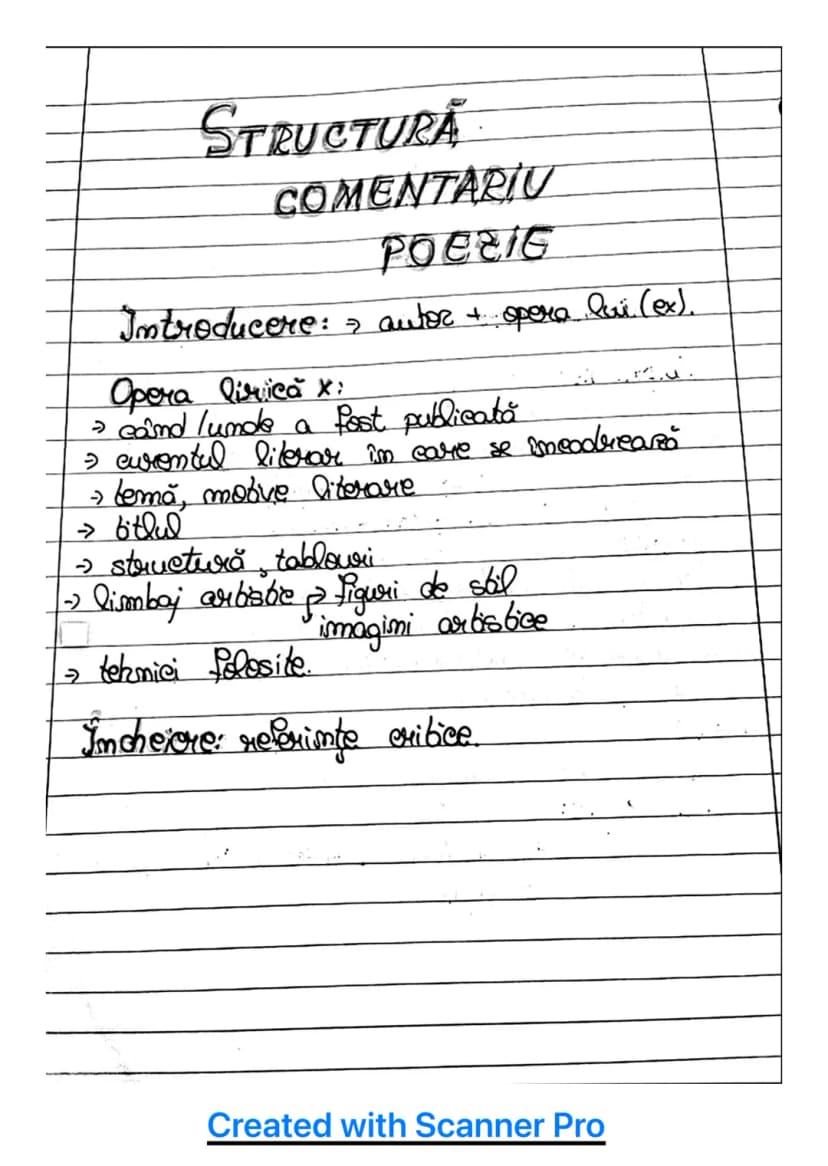 STRUCTURĂ
COMENTARIU
POEZIE
Introducere: → autor + opera lui (ex).
Opera lirică x:
→ când/unde a fost publicată
→ curentul literar în care se încadrează
→ temă, motive literare
→ titlul
→ structură, tablouri
→ limbaj artistic → figuri de stil
imagini artistice
→ tehnici folosite.
Încheiere: referințe critice.
Created with Scanner Pro